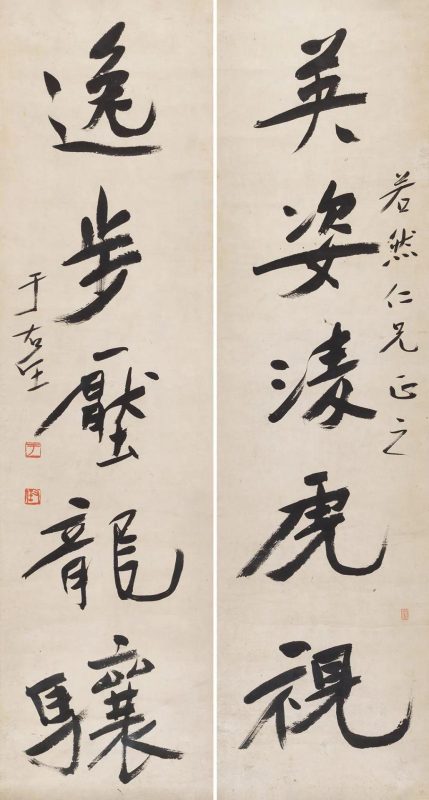 若然仁兄正之
英姿淩虎視
逸步壓龍驤
于右任